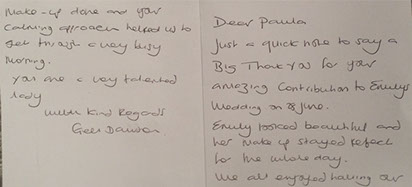 Dear Paula
Just a quick note to say a
Big Thank you for your
amazing Contribution to Emilys
Wedding on 8 June.
Emily looked beautiful and
her make up stayed perfect
for the whole day.
We all enjoyed having our
Make-up done and your
Calming approach helped us to
get through a very busy
Morning.
You are a very talented
lady
With Kind Regards